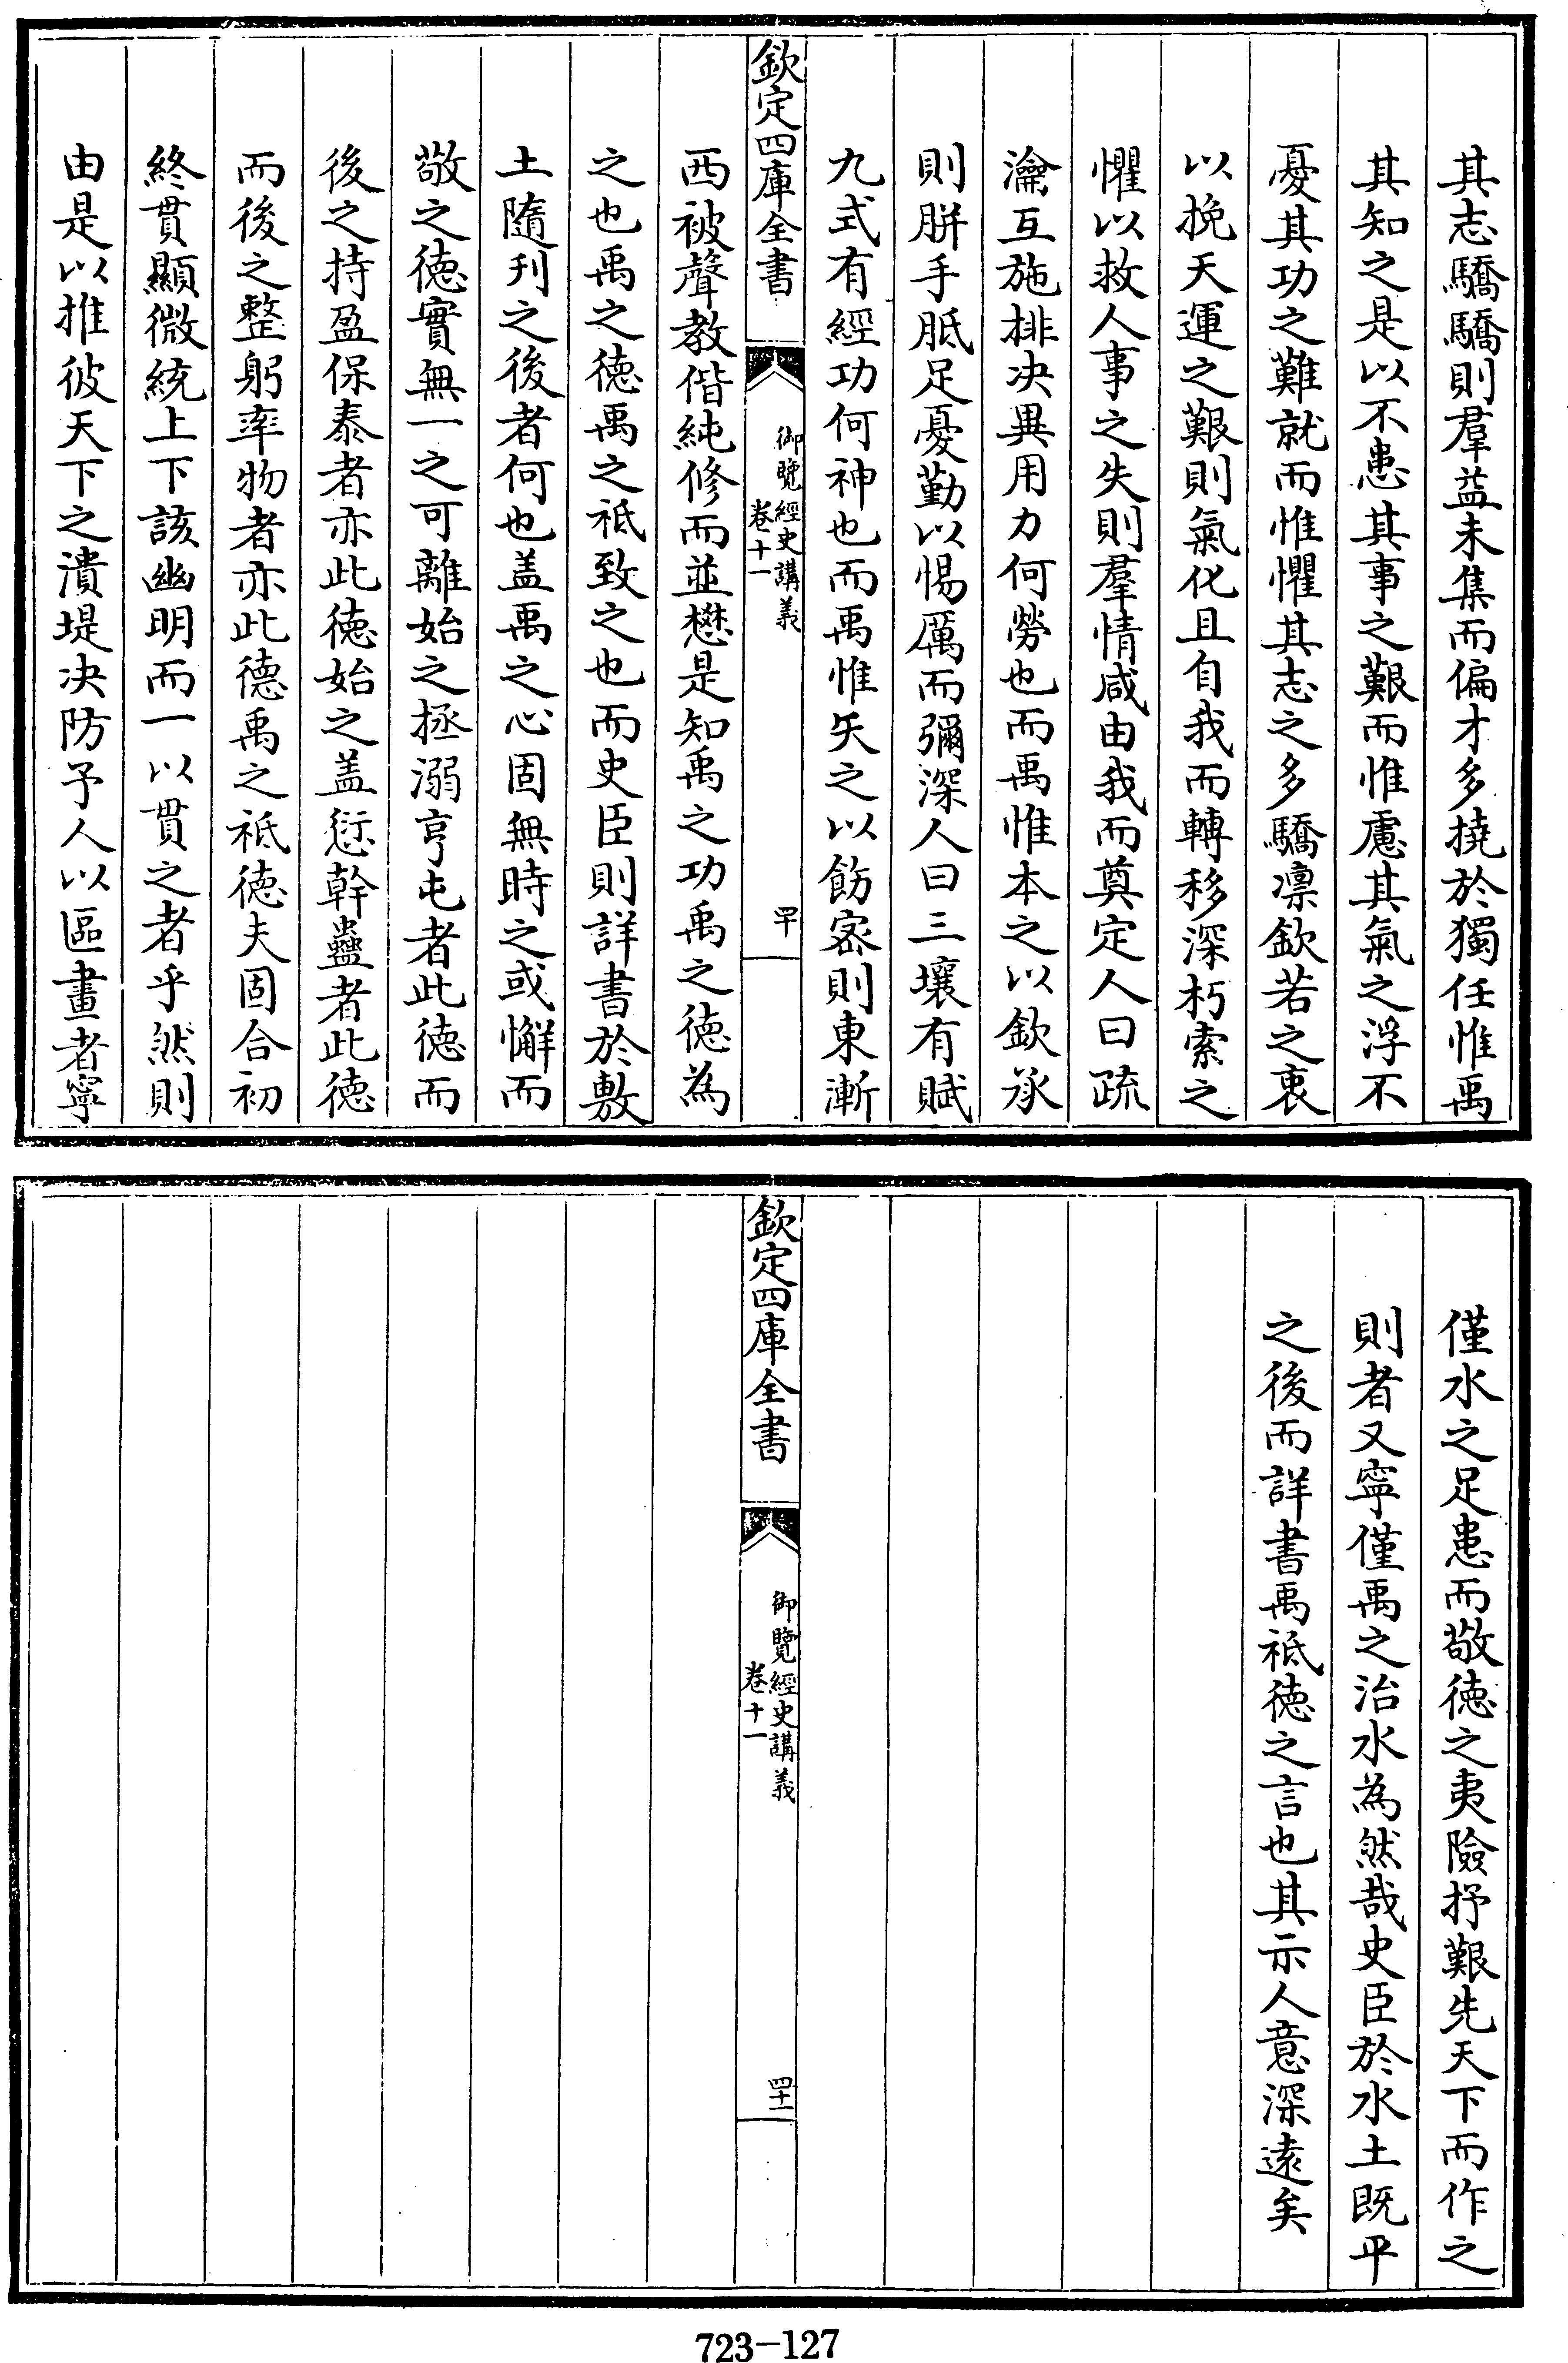 其志驕驕則羣益未集而偏才多撓於獨任惟禹
其知之是以不患其事之艱而惟慮其氣之浮不
憂其功之難就而惟懼其志之多驕凛欽若之衷
以挽天運之艱則氣化且自我而轉移深朽索之
懼以救人事之失則羣情咸由我而奠定人曰疏
瀹互施排决異用力何勞也而禹惟本之以欽承
則胼手胝足憂勤以惕厲而彌深人曰三壤有賦
九式有經功何神也而禹惟矢之以飭宻則東漸
欽定四庫全書
御覽經史講義
卷十一
四十
西被聲教偕純修而並懋是知禹之功禹之徳為
之也禹之徳禹之祇致之也而史臣則詳書於敷
土隨刋之後者何也盖禹之心固無時之或懈而
敬之徳實無一之可離始之拯溺亨屯者此徳而
後之持盈保泰者亦此徳始之盖愆幹蠱者此徳
而後之整躬率物者亦此徳禹之祗徳夫固合初
終貫顯微統上下該幽明而一以貫之者乎然則
由是以推彼天下之潰堤决防予人以區畫者寧
僅水之足患而敬徳之夷險抒艱先天下而作之
則者又寧僅禹之治水為然哉史臣於水土既平
之後而詳書禹祗徳之言也其示人意深逺矣
欽定四庫全書
御覽經史講義
卷十一
四十一
723-127